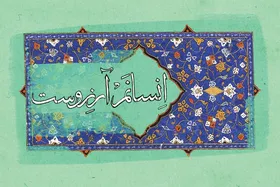 انسانم آرزوست